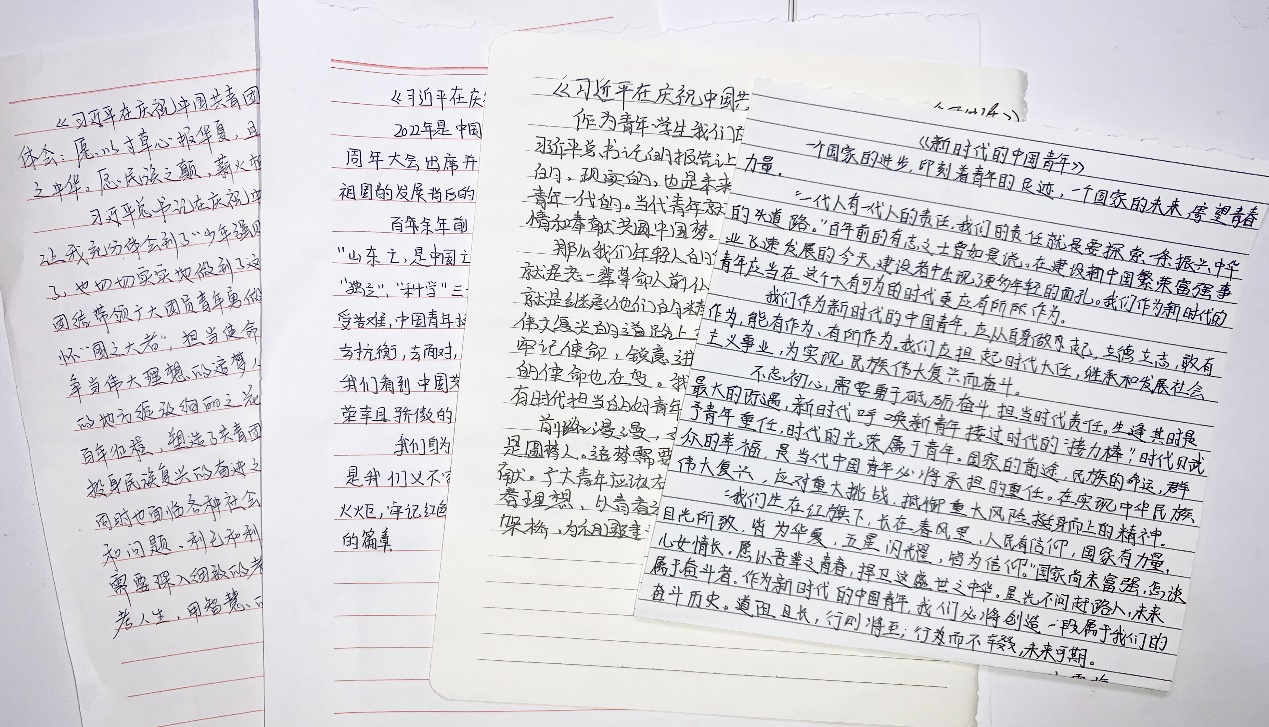 《习近平在庆祝中国共青团
体会：愿以寸草心，报华夏，且
之中华。愿民族之颠，薪火
习近平总书记在庆祝中
让我充分体会到了"少年强国
了，也切切实实地做到了这
团结带领广大团员青年勇做
怀"国之大者"，担当使命
争当伟大理想的追梦人
的地方绽放绚丽之花
百年征程，塑造了共青团
投身民族复兴的奋进之
同时也面临各种社会
和问题、利己和利
需要深入细致的
考人生，用智慧、
《习近平在庆
2022年是中国
周年大会出席并
祖国的发展背后的
百年余年前
"山东之，是中国之
"独立"，"科学"三
受苦难，中国青年
去抗衡，去面对，
我们看到中国共
荣幸且骄傲的
我们身为
是我们义不容
火火炬，牢记红色
的篇章
《习近平在庆祝中国共
作为青年学生我们应
习近平总书记的报告让
的，现实的，也是未来
青年一代的。当代青年就
情和奉献共圆中国梦。
那么我们年轻人的
就是老一辈革命人前仆
就是继承他们的精
伟大复兴的道路上
牢记使命，锐意进
的使命也在变。我
有时代担当的好青年
前路漫漫，
是圆梦人。追梦需要
献。广大青年应该在
着理想，以青春
架桥，为祖国
《新时代的中国青年》
一个国家的进步，印刻着青年的足迹，一个国家的未来，寄望青春
力量。
"一代人有一代人的责任，我们的责任就是要探索一条振兴中华
的求道路。"百年前的有志之士曾如是说。在建设和中国繁荣富强事
业飞速发展的今天，建设者中出现了更多年轻的面孔。我们作为新时代的
青年应当在这个大有可为的时代更应有所所作为。
我们作为新时代的中国青年，应从自身做起，立德立志，敢有
作为，能有作为、有所作为。我们应担起时代大任，继承和发展社会
主义事业，为实现民族伟大复兴而奋斗。
不忘初心，需要勇于砥砺奋斗，担当时代责任。生逢其时是
最大的际遇，新时代呼唤新青年接过时代的"接力棒"，时代赋
予青年重任，时代的光荣属于青年。国家的前途，民族的命运，群
众的幸福，是当代中国青年必将承担的重任。在实现中华民族
伟大复兴，应对重大挑战，抵御重大风险挺身而上的精神。
"我们生在红旗下，长在春风里，人民有信仰，国家有力量，
目光所致，皆为华夏，五星闪耀，皆为信仰。"国家尚未富强，怎谈
儿女情长。愿以吾辈之青春，捍卫这盛世之中华。星光不问赶路人，未来
属于奋斗者。作为新时代的中国青年，我们必将创造一段属于我们的
奋斗历史。道阻且长，行则将至；行者而不辍，未来可期。